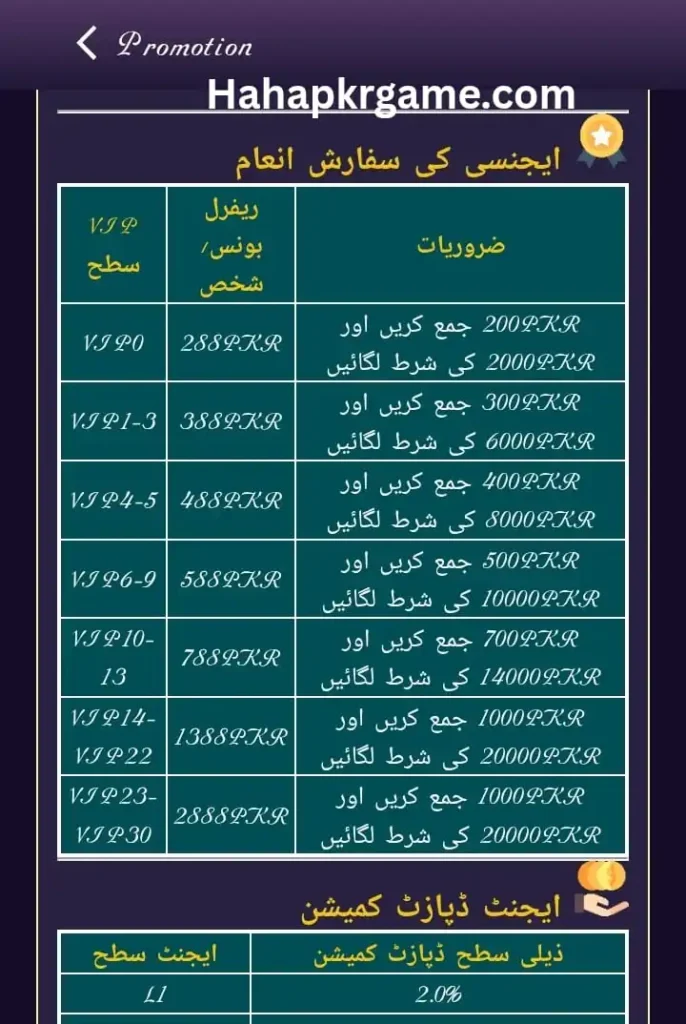 Promotion
Hahapkrgame.com
ایجنسی کی سفارش انعام
VIP سطح
ریفرل بونس/ شخص
ضروریات
VIP0
288PKR
200PKR جمع کریں اور
2000PKR کی شرط لگائیں
VIP1-3
388PKR
300PKR جمع کریں اور
6000PKR کی شرط لگائیں
VIP4-5
488PKR
400PKR جمع کریں اور
8000PKR کی شرط لگائیں
VIP6-9
588PKR
500PKR جمع کریں اور
10000PKR کی شرط لگائیں
VIP10-
13
788PKR
700PKR جمع کریں اور
14000PKR کی شرط لگائیں
VIP14-
VIP22
1388PKR
1000PKR جمع کریں اور
20000PKR کی شرط لگائیں
VIP23-
VIP30
2888PKR
1000PKR جمع کریں اور
20000PKR کی شرط لگائیں
ایجنٹ ڈپازٹ کمیشن
ایجنٹ سطح
ذیلی سطح ڈپازٹ کمیشن
L1
2.0%